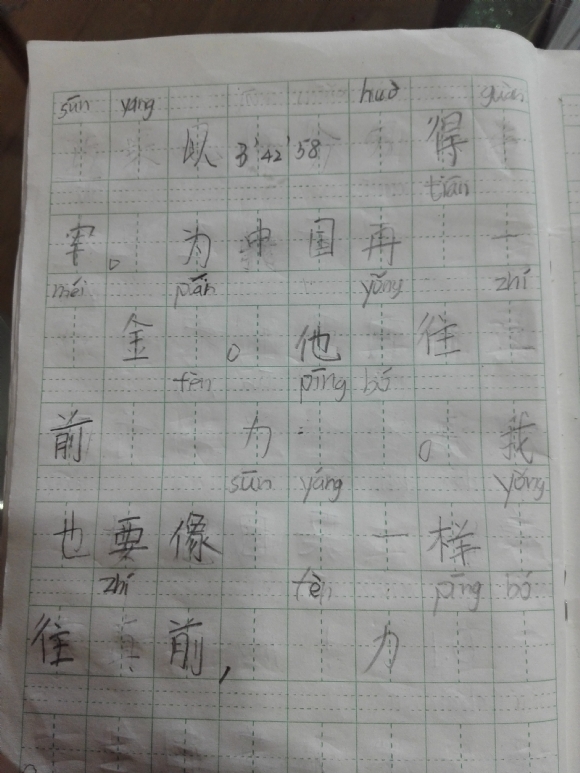 sūn yáng huò guàn
以 3'42'58 得
tiān
军。为中国再 一
méi pán yǒng zhí
金 。他 往
fèn pīng bó
前 力 。我
sūn yáng yǒng
也要像 一样
zhí fèn pīng bó
往 前, 力